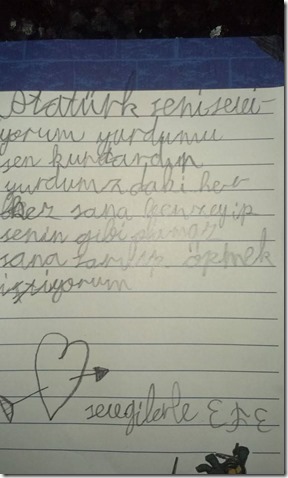 Atatürk seni sevi-
yorum yurdumu
sen kurtardın
yurdumzdaki her
kez sana benzeyip
senin gibi
sana sarılıp öpmek
istiyorum
sevgilerle EFE